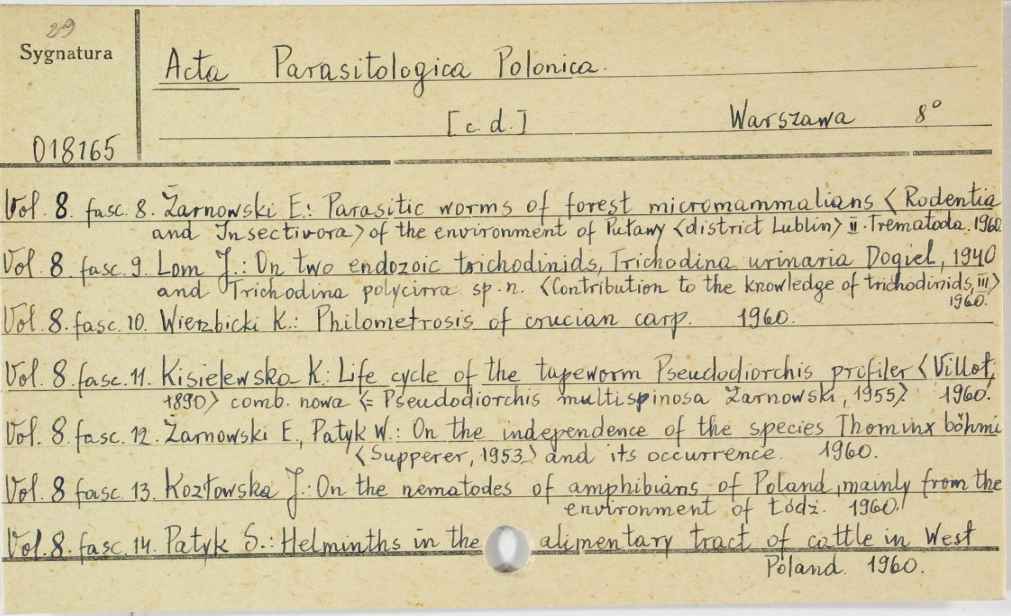 29
Sygnatura
018165
Acta Parasitologica Polonica.
[c. d.] Warszawa 8°
Vol. 8. fasc. 8. Żarnowski E.: Parasitic worms of forest micromammalians <Rodentia
and Insectivora> of the environment of Puławy <district Lublin> II. Trematoda. 1960.
Vol. 8 fasc. 9. Lom J.: On two endozoic trichodinids, Trichodina urinaria Dogiel, 1940
and Trichodina polycirra sp. n. <Contribution to the knowledge of trichodinids, III>
1960.
Vol. 8. fasc. 10. Wierzbicki K.: Philometrosis of crucian carp. 1960.
Vol. 8. fasc. 11. Kisielewska K.: Life cycle of the tapeworm Pseudodiorchis prolifer <Villot,
1890> comb. nowa <= Pseudodiorchis multispinosa Żarnowski, 1955>. 1960.
Vol. 8. fasc. 12. Żarnowski E., Patyk W.: On the independence of the species Thominx böhmi
<Supperer, 1953> and its occurrence. 1960.
Vol. 8 fasc. 13. Kozłowska J.: On the nematodes of amphibians of Poland, mainly from the
environment of Łódź. 1960.
Vol. 8. fasc. 14. Patyk S.: Helminths in the alimentary tract of cattle in West
Poland. 1960.